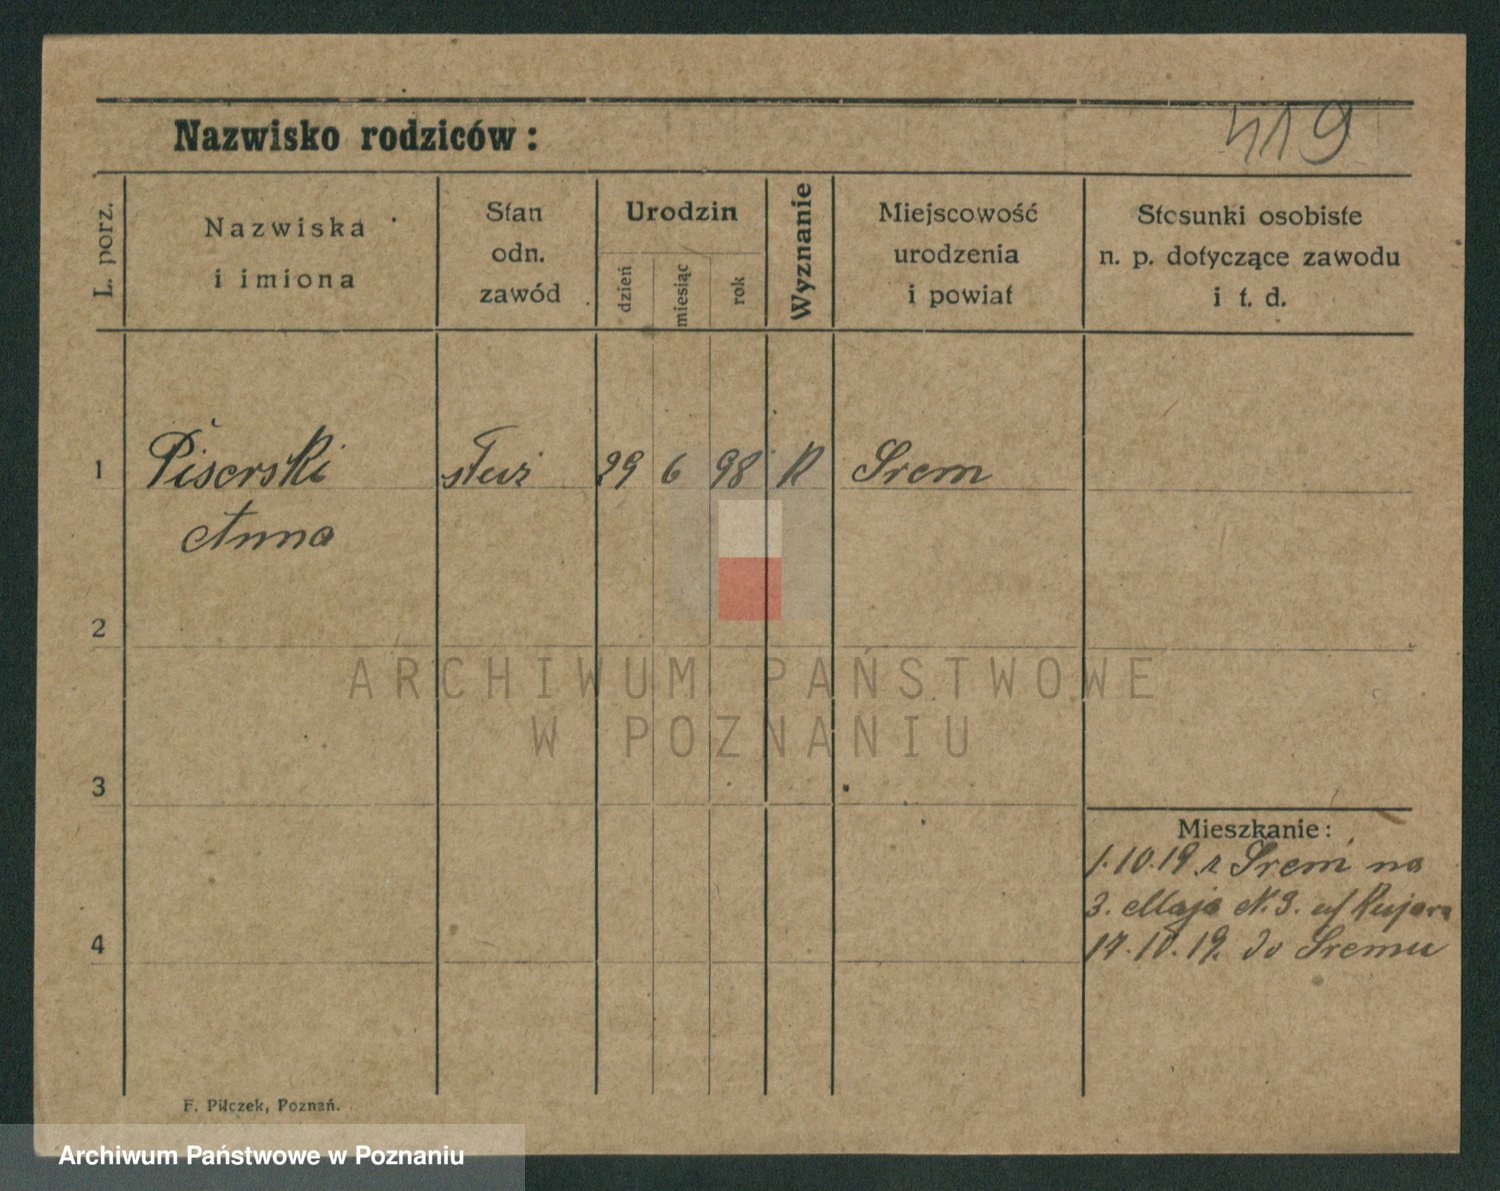 Nazwisko rodziców:
419
L. porz.
Nazwiska
i imiona
Stan
odn.
zawód
Urodzin
dzień
miesiąc
rok
Wyznanie
Miejscowość
urodzenia
i powiat
Stosunki osobiste
n. p. dotyczące zawodu
i t. d.
1 Piserski 29 6 98 K Srem
Anna
2
ARCHIWUM PAŃSTWOWE
W POZNANIU
3
Mieszkanie:
1.10.19 z Srem na
3. Maja N. 3.
4
17.10.19. do Sremu
F. Pilczek, Poznań.
Archiwum Państwowe w Poznaniu